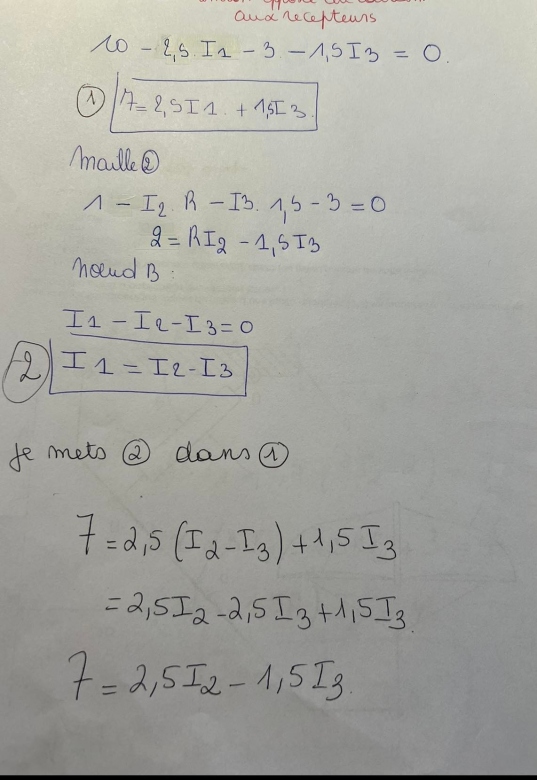 aux recepteurs
10 - 2,5 I1 - 3 - 1,5 I3 = 0.
① 7 = 2,5 I1 + 1,5 I3
Maille ②
1 - I2. R - I3. 1,5 - 3 = 0
2 = RI2 - 1,5 I3
Noeud B :
I1 - I2 - I3 = 0
2 I1 = I2 - I3
Je mets ② dans ①
7 = 2,5 (I2 - I3) + 1,5 I3
= 2,5 I2 - 2,5 I3 + 1,5 I3.
7 = 2,5 I2 - 1,5 I3.